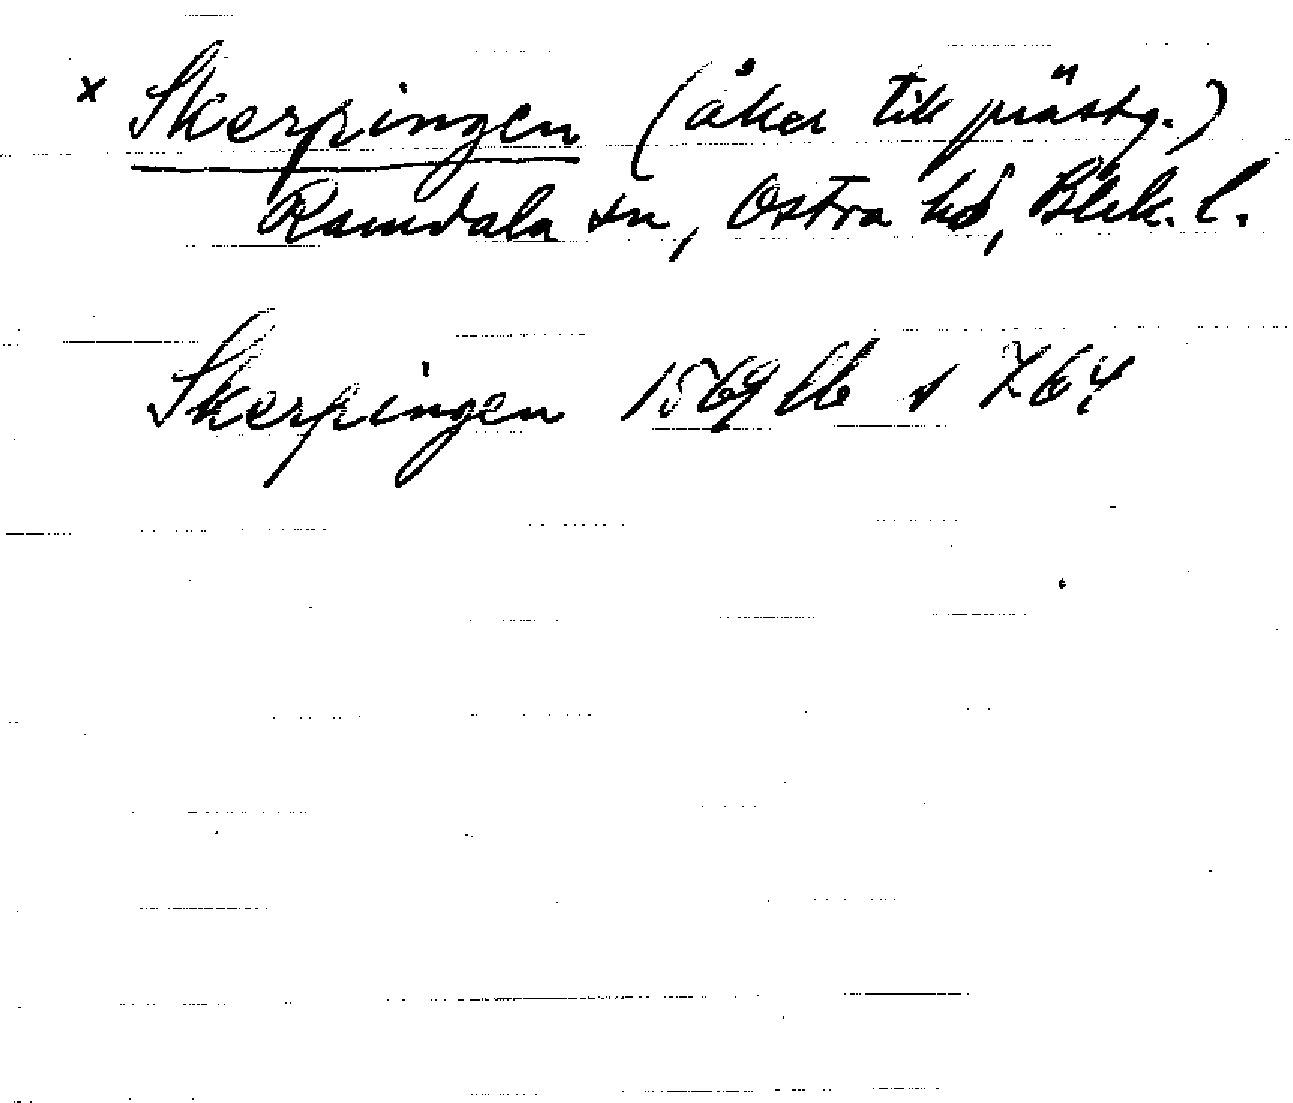 x Skerpingen (åker till prästg.)
Ramdala sn, Östra hd, Blek. l.
Skerpingen 1569 lb s 764